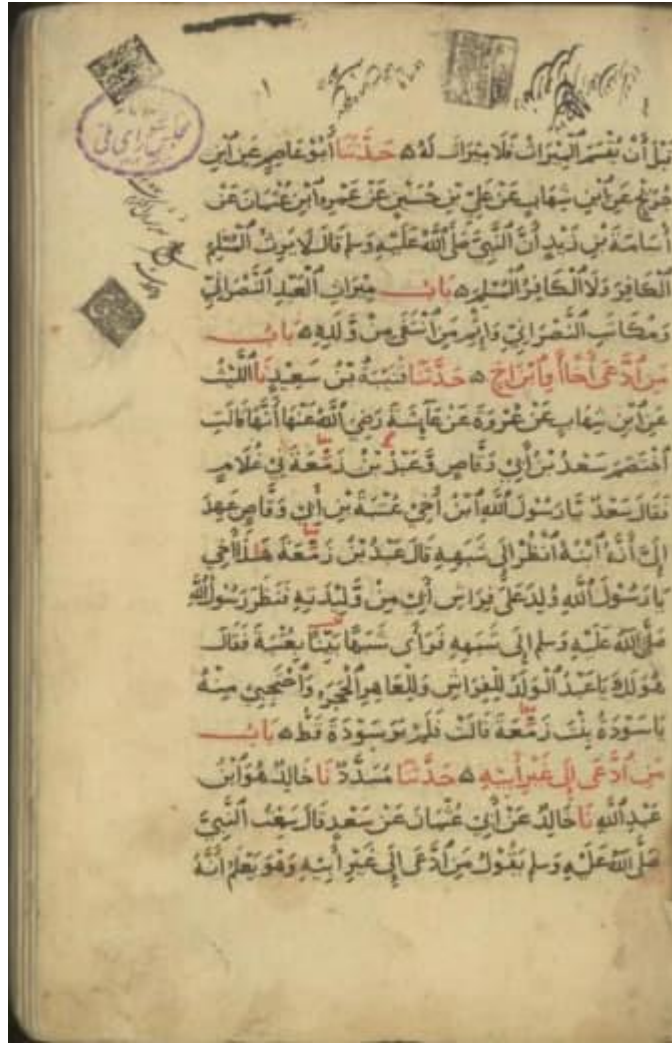 مجلس شورای ملی
قَبْلَ أَنْ يُقْسَمَ ٱلْمِيرَاثُ فَلَا مِيرَاثَ لَهُ ۞ حَدَّثَنَا أَبُو عَاصِمٍ عَنِ ٱبْنِ
جُرَيْجٍ عَنِ ٱبْنِ شِهَابٍ عَنْ عَلِيِّ بْنِ حُسَيْنٍ عَنْ عَمْرِو ٱبْنِ عُثْمَانَ عَنْ
أُسَامَةَ بْنِ زَيْدٍ أَنَّ ٱلنَّبِيَّ صَلَّى ٱللَّهُ عَلَيْهِ وَسَلَّمَ قَالَ لَا يَرِثُ ٱلْمُسْلِمُ
ٱلْكَافِرَ وَلَا ٱلْكَافِرُ ٱلْمُسْلِمَ ۞ بَابُ مِيرَاثِ ٱلْعَبْدِ ٱلنَّصْرَانِيِّ
وَمُكَاتَبِ ٱلنَّصْرَانِيِّ وَإِثْمِ مَنِ ٱنْتَفَى مِنْ وَلَدِهِ ۞ بَابُ
مَنِ ٱدَّعَى أَخًا أَوِ ٱبْنَ أَخٍ ۞ حَدَّثَنَا قُتَيْبَةُ بْنُ سَعِيدٍ نَا ٱللَّيْثُ
عَنِ ٱبْنِ شِهَابٍ عَنْ عُرْوَةَ عَنْ عَائِشَةَ رَضِيَ ٱللَّهُ عَنْهَا أَنَّهَا قَالَتِ
ٱخْتَصَمَ سَعْدُ بْنُ أَبِي وَقَّاصٍ وَعَبْدُ بْنُ زَمْعَةَ فِي غُلَامٍ
فَقَالَ سَعْدٌ يَا رَسُولَ ٱللَّهِ ٱبْنُ أَخِي عُتْبَةَ بْنِ أَبِي وَقَّاصٍ عَهِدَ
إِلَيَّ أَنَّهُ ٱبْنُهُ ٱنْظُرْ إِلَى شَبَهِهِ قَالَ عَبْدُ بْنُ زَمْعَةَ هَذَا أَخِي
يَا رَسُولَ ٱللَّهِ وُلِدَ عَلَى فِرَاشِ أَبِي مِنْ وَلِيدَتِهِ فَنَظَرَ رَسُولُ ٱللَّهِ
صَلَّى ٱللَّهُ عَلَيْهِ وَسَلَّمَ إِلَى شَبَهِهِ فَرَأَى شَبَهًا بَيِّنًا بِعُتْبَةَ فَقَالَ
هُوَ لَكَ يَا عَبْدُ ٱلْوَلَدُ لِلْفِرَاشِ وَلِلْعَاهِرِ ٱلْحَجَرُ وَٱحْتَجِبِي مِنْهُ
يَا سَوْدَةُ بِنْتَ زَمْعَةَ قَالَتْ فَلَمْ يَرَ سَوْدَةَ قَطُّ ۞ بَابُ
مَنِ ٱدَّعَى إِلَى غَيْرِ أَبِيهِ ۞ حَدَّثَنَا مُسَدَّدٌ نَا خَالِدٌ هُوَ ٱبْنُ
عَبْدِ ٱللَّهِ نَا خَالِدٌ عَنْ أَبِي عُثْمَانَ عَنْ سَعْدٍ قَالَ سَمِعْتُ ٱلنَّبِيَّ
صَلَّى ٱللَّهُ عَلَيْهِ وَسَلَّمَ يَقُولُ مَنِ ٱدَّعَى إِلَى غَيْرِ أَبِيهِ وَهُوَ يَعْلَمُ أَنَّهُ